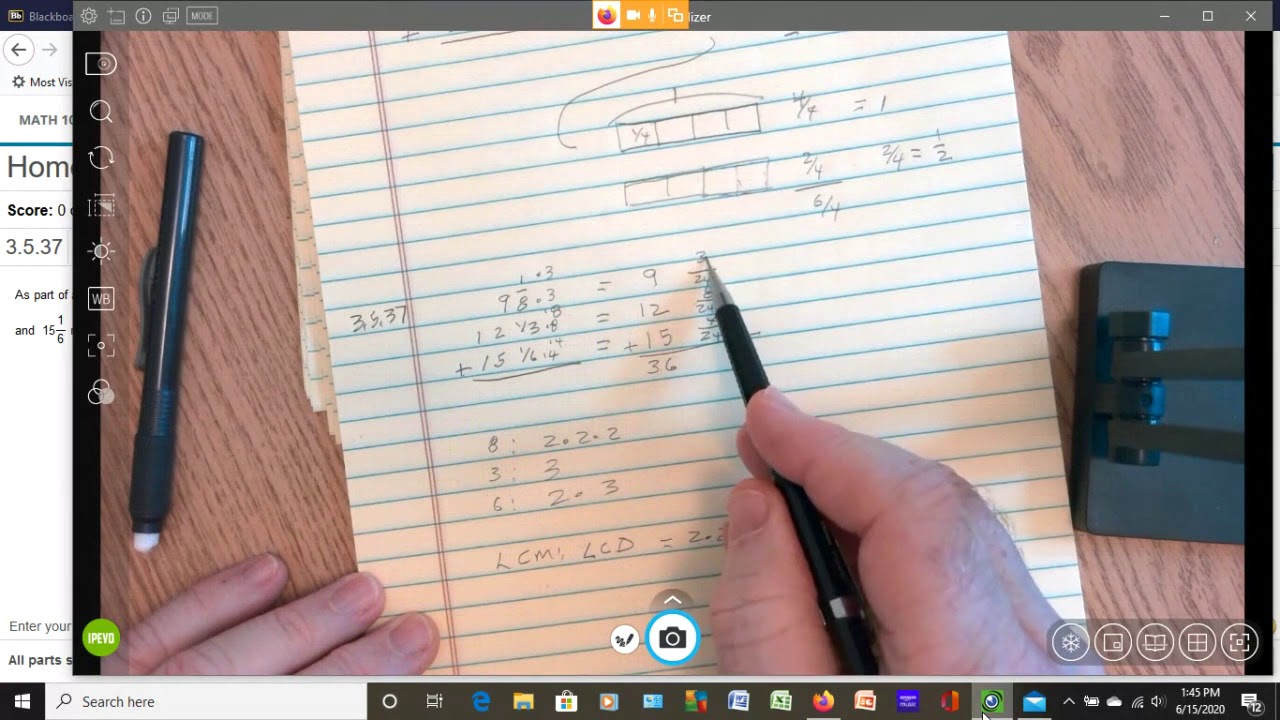 Blackboa
MODE
lizer
Most Vis
MATH 10
Home
Score: 0 o
3.5.37
As part of a
and 15 1/6 m
Enter your
All parts s
IPEVO
WB
1
1/4
4/4 = 1
2/4
2/4 = 1/2
6/4
3.5.37
9 1·3/8·3 = 9 3/24
12 1/3 ·8/·8 = 12 8/24
+ 15 1/6 ·4/·4 = + 15 4/24
36
8: 2·2·2
3: 3
6: 2·3
LCM, LCD = 2·2
Search here
1:45 PM
6/15/2020
12